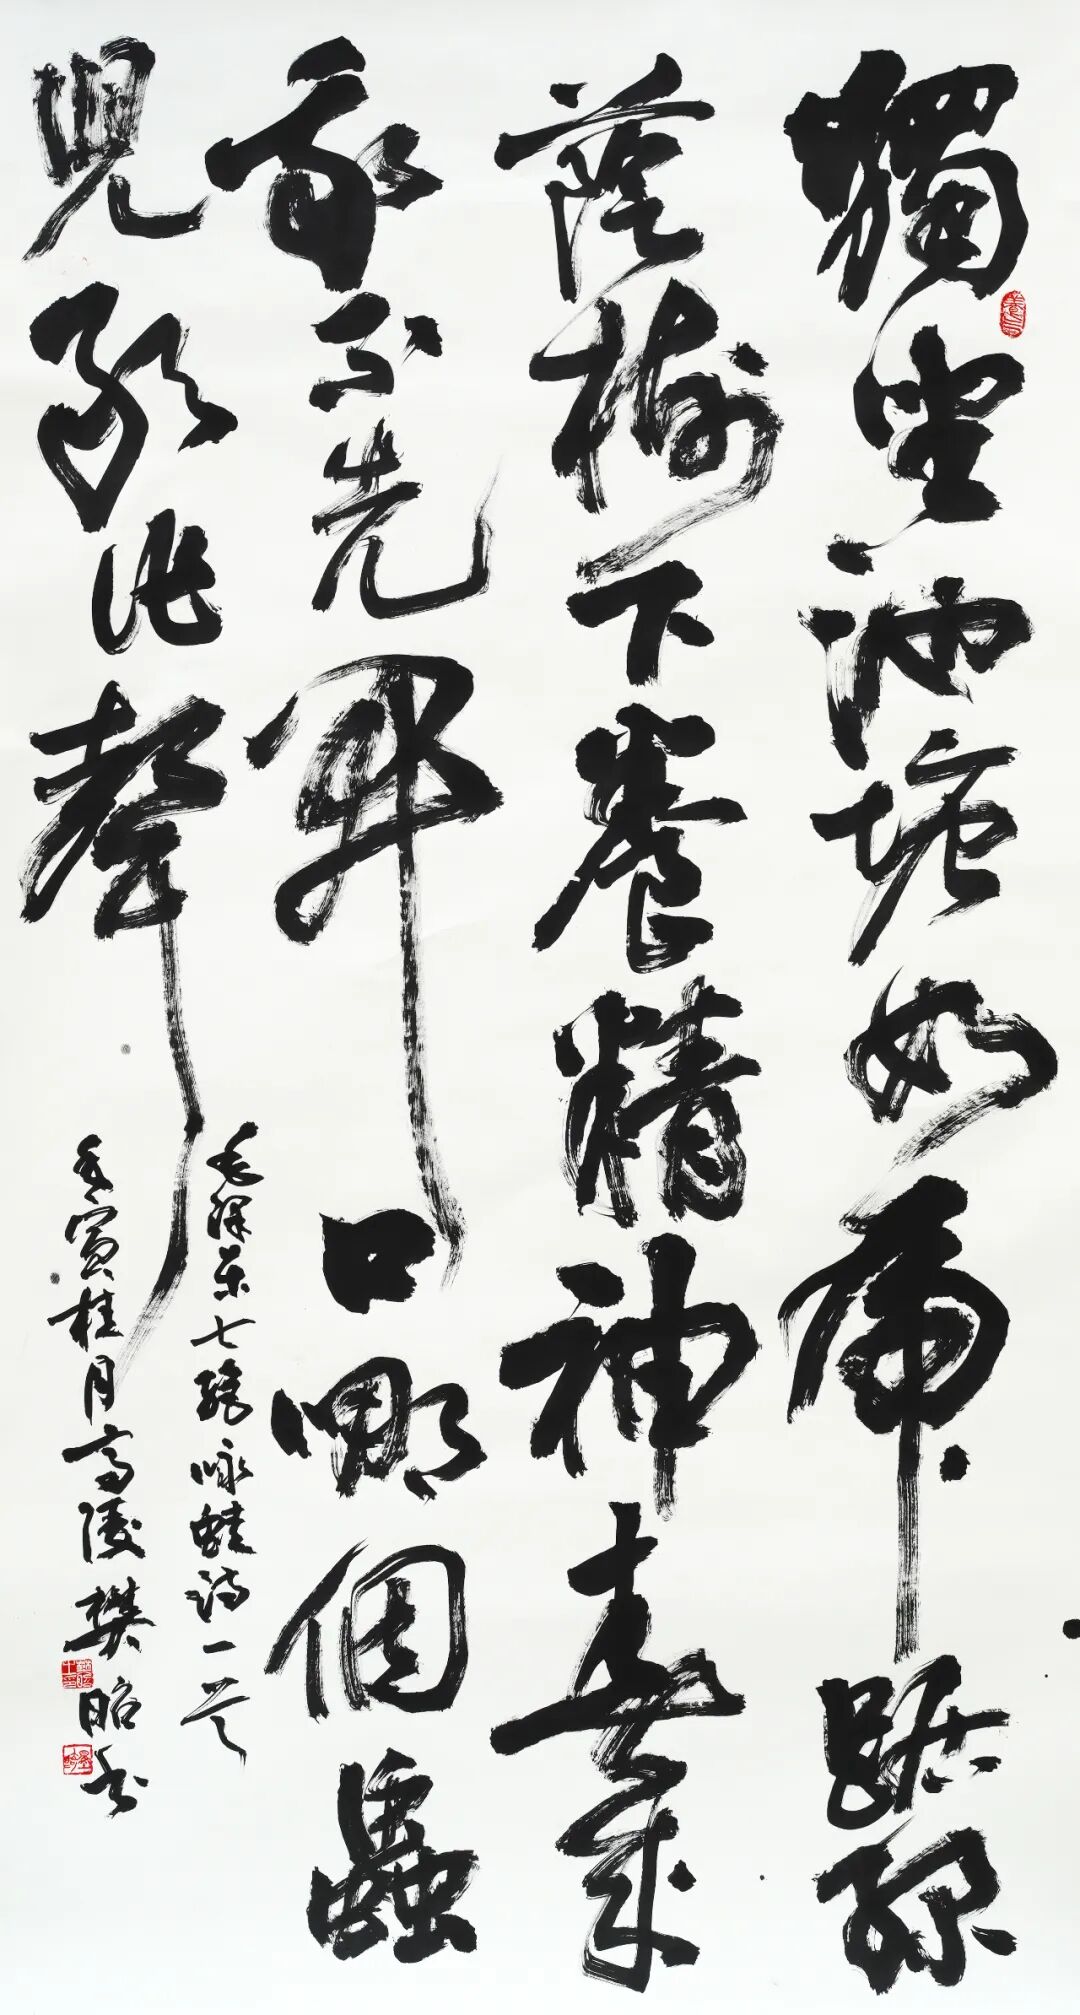 獨坐池塘如虎踞綠
蔭樹下養精神春來
我不先開口哪個蟲
兒敢作聲
毛澤東七絕咏蛙詩一首
壬寅桂月高陵樊昭书